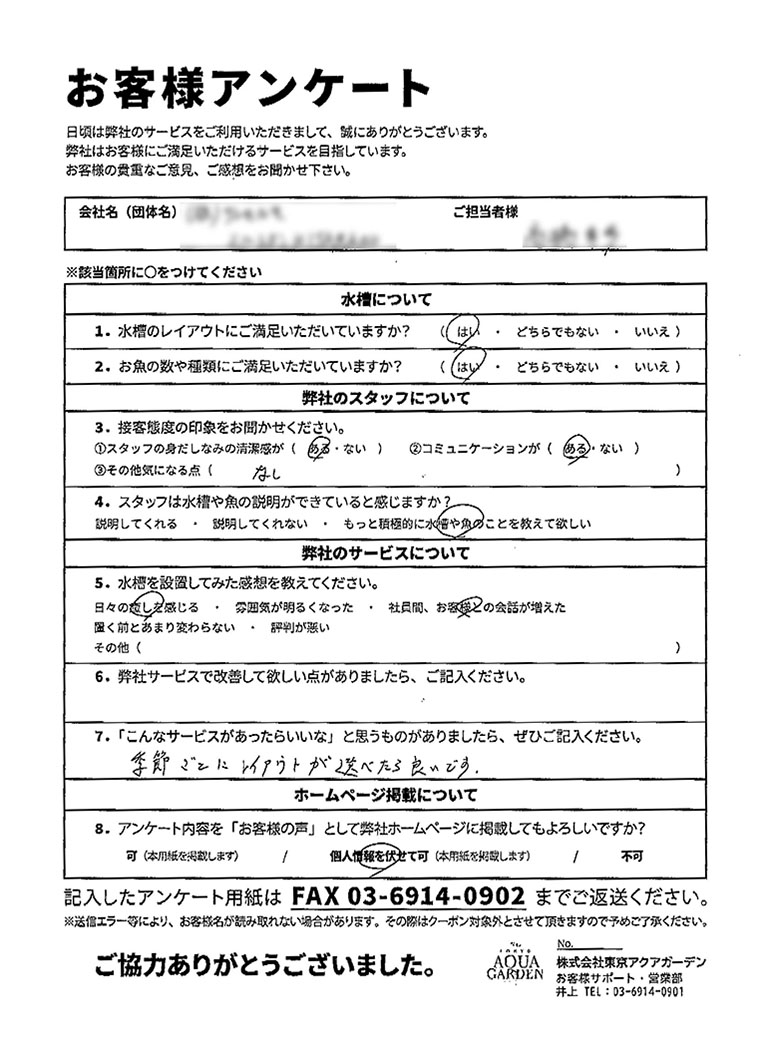 お客様アンケート
日頃は弊社のサービスをご利用いただきまして、誠にありがとうございます。
弊社はお客様にご満足いただけるサービスを目指しています。
お客様の貴重なご意見、ご感想をお聞かせ下さい。
会社名（団体名） ご担当者様
※該当箇所に○をつけてください
水槽について
1. 水槽のレイアウトにご満足いただいていますか？ （ はい ・ どちらでもない ・ いいえ ）
2. お魚の数や種類にご満足いただいていますか？ （ はい ・ どちらでもない ・ いいえ ）
弊社のスタッフについて
3. 接客態度の印象をお聞かせください。
①スタッフの身だしなみの清潔感が（ ある・ない ） ②コミュニケーションが（ ある・ない ）
③その他気になる点（ なし ）
4. スタッフは水槽や魚の説明ができていると感じますか？
説明してくれる ・ 説明してくれない ・ もっと積極的に水槽や魚のことを教えて欲しい
弊社のサービスについて
5. 水槽を設置してみた感想を教えてください。
日々の癒しを感じる ・ 雰囲気が明るくなった ・ 社員間、お客様との会話が増えた
置く前とあまり変わらない ・ 評判が悪い
その他（ ）
6. 弊社サービスで改善して欲しい点がありましたら、ご記入ください。
7. 「こんなサービスがあったらいいな」と思うものがありましたら、ぜひご記入ください。
季節ごとにレイアウトが選べたら良いです.
ホームページ掲載について
8. アンケート内容を「お客様の声」として弊社ホームページに掲載してもよろしいですか？
可（本用紙を掲載します） / 個人情報を伏せて可（本用紙を掲載します） / 不可
記入したアンケート用紙は FAX 03-6914-0902 までご返送ください。
※送信エラー等により、お客様名が読み取れない場合があります。その際はクーポン対象外とさせて頂きますので予めご了承ください。
ご協力ありがとうございました。
TOKYO
AQUA
GARDEN
No.
株式会社東京アクアガーデン
お客様サポート・営業部
井上 TEL：03-6914-0901